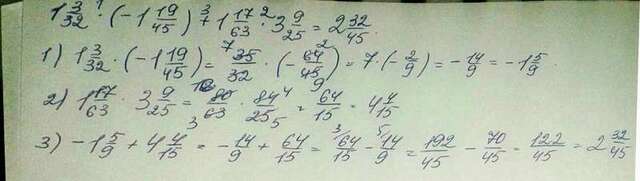 1 3/32 · (-1 19/45) + 1 17/63 · 3 9/25 = 2 32/45.
1) 1 3/32 · (-1 19/45) = 35/32 · (-64/45) = 7 · (-2/9) = -14/9 = -1 5/9.
2) 1 17/63 · 3 9/25 = 80/63 · 84/25 = 64/15 = 4 4/15
3) -1 5/9 + 4 4/15 = -14/9 + 64/15 = 64/15 - 14/9 = 192/45 - 70/45 = 122/45 = 2 32/45